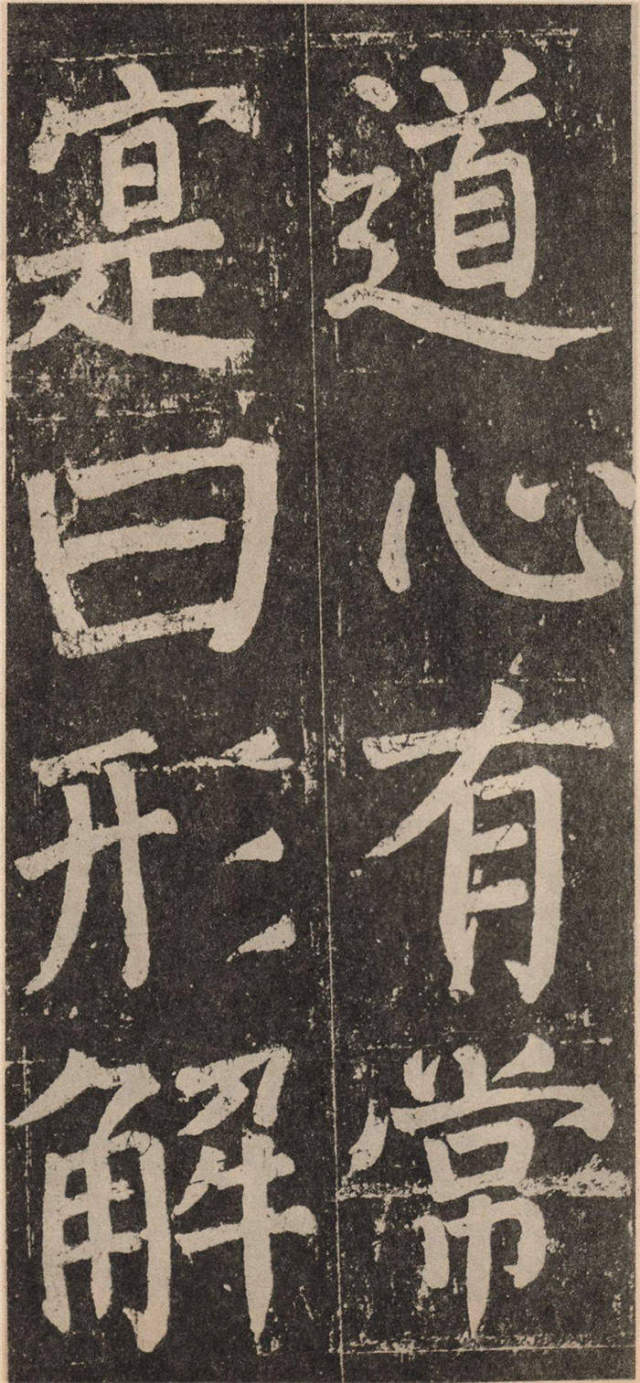 道心有常
寔曰形解